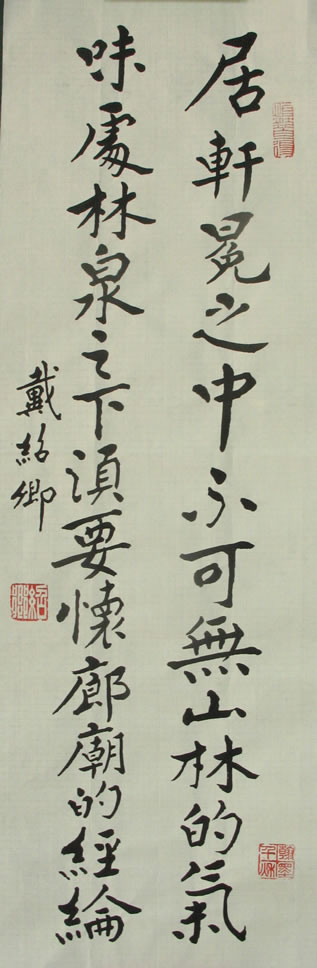 居軒冕之中不可無山林的氣
味處林泉之下須要懷廊廟的經綸
戴紹卿